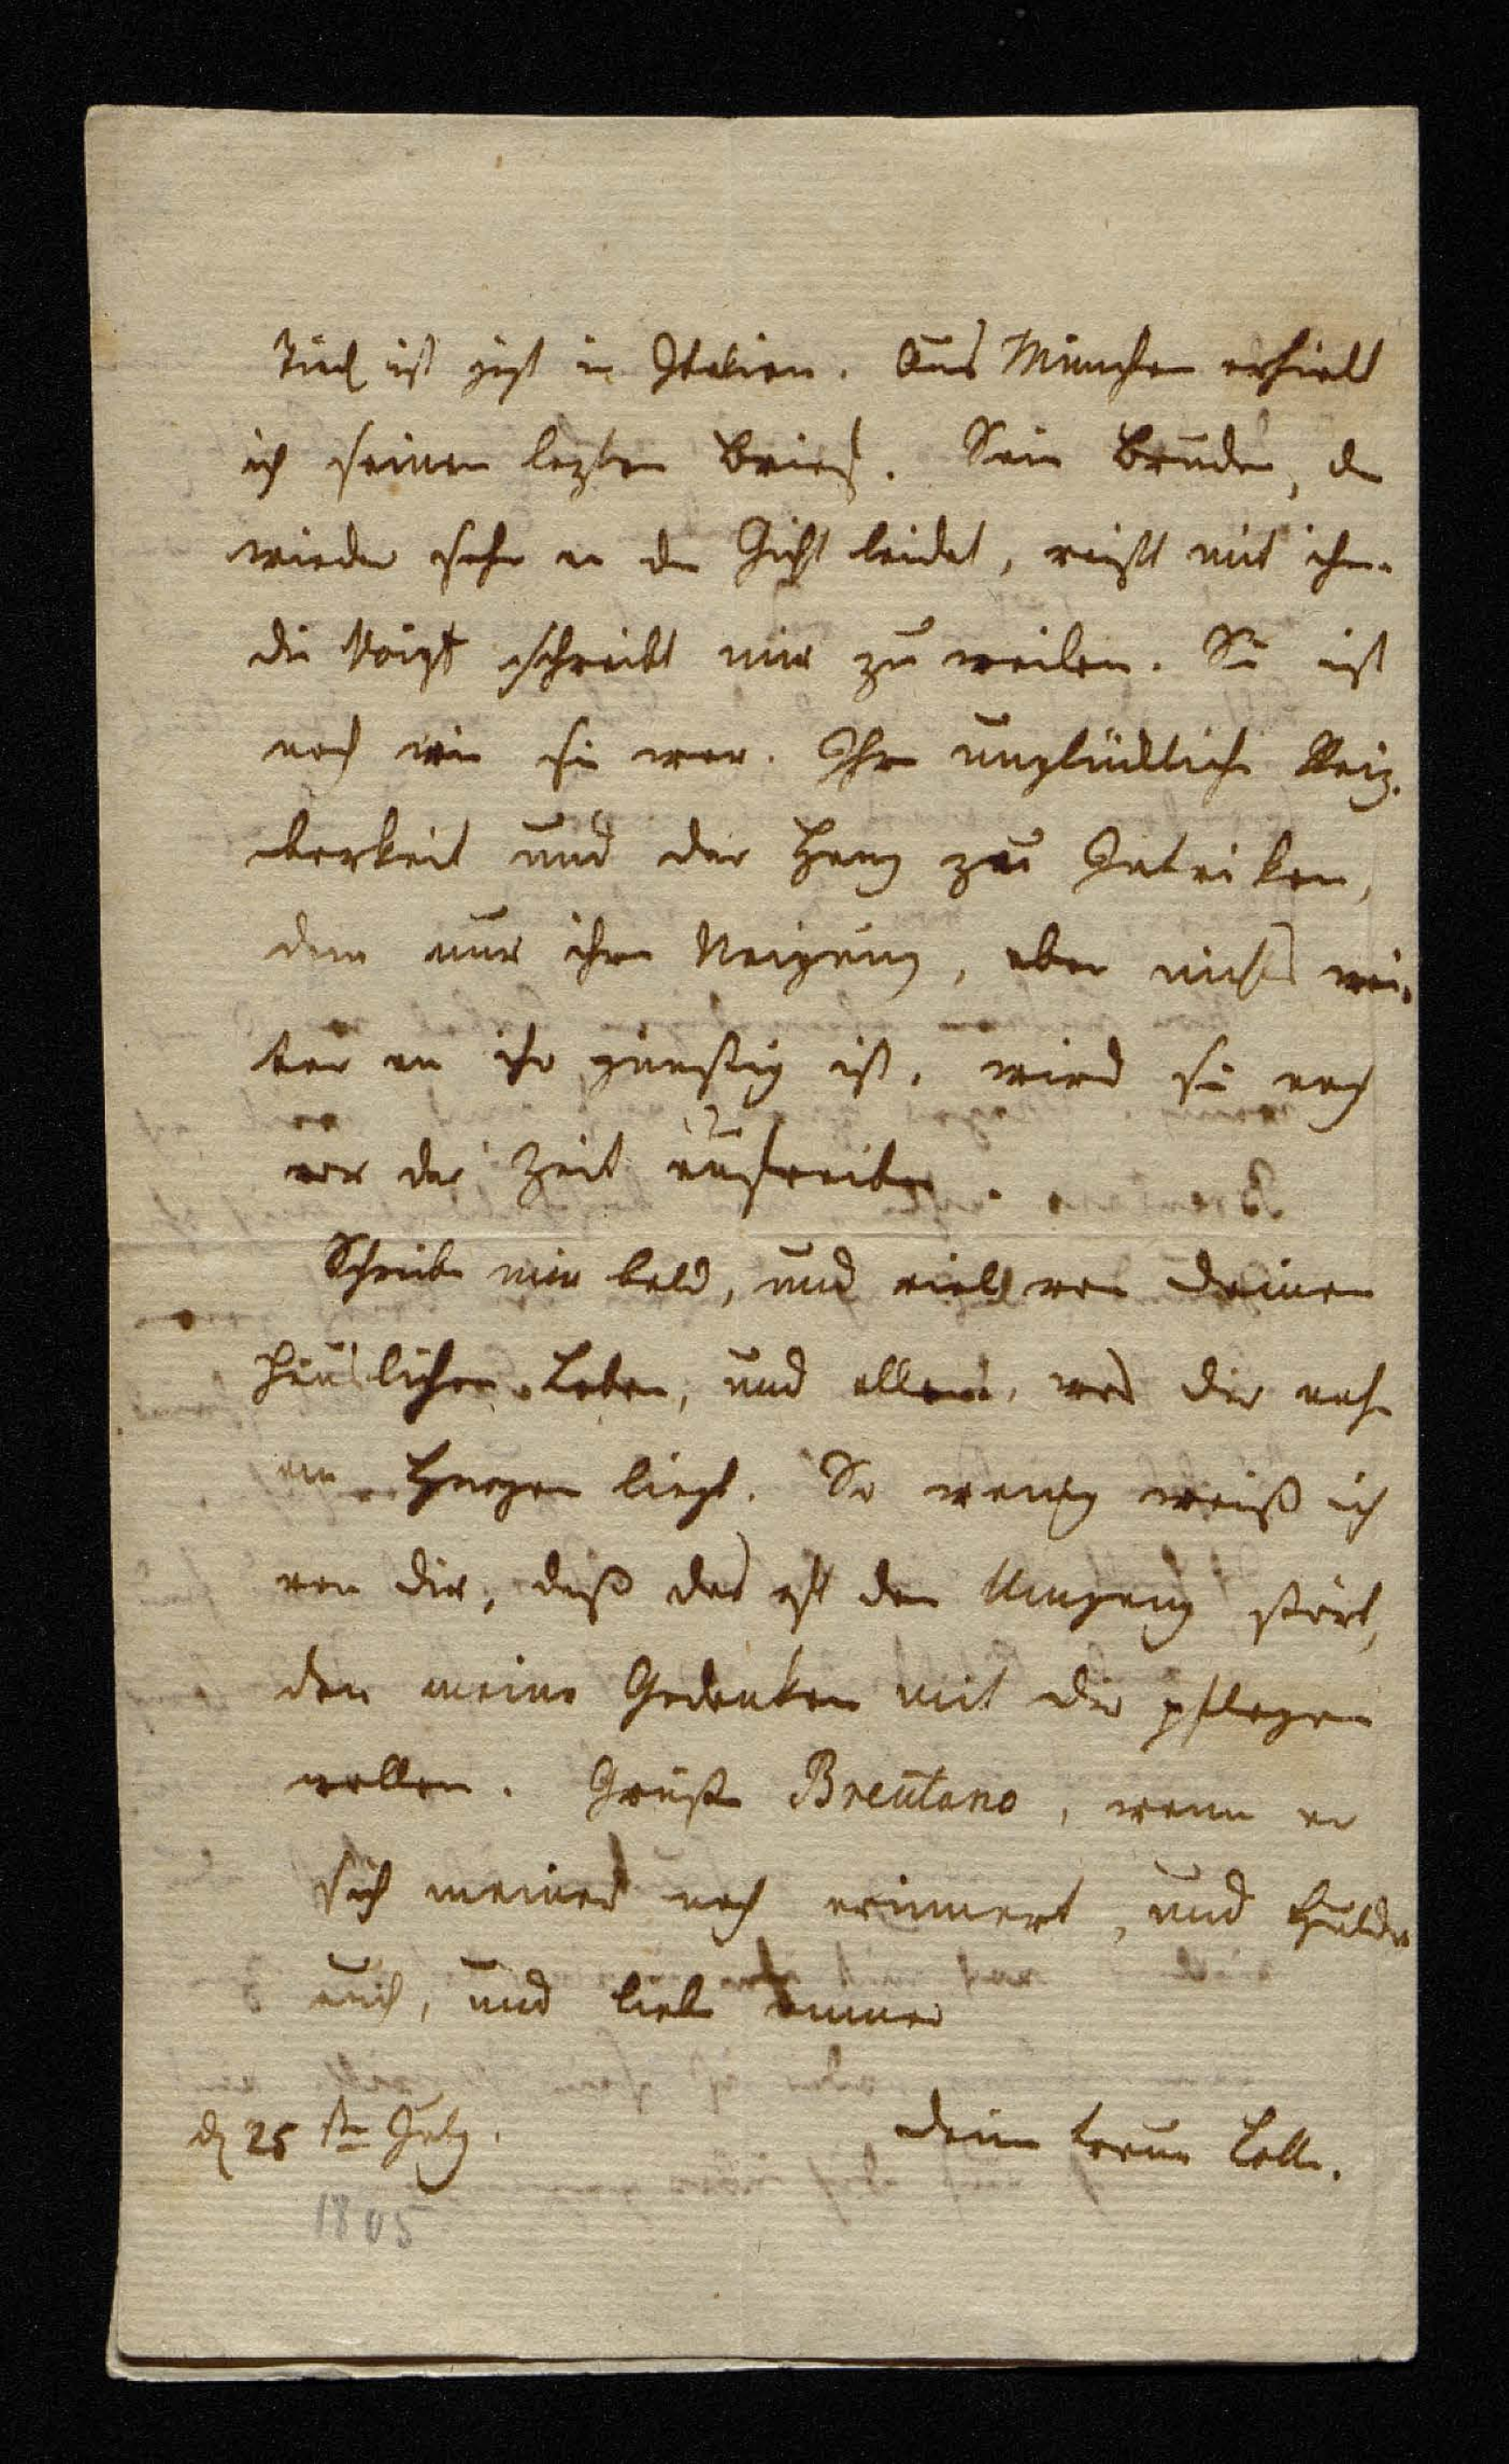 Tieck ist jezt in Italien. Aus München erhielt
ich seinen lezten Brief. Sein Bruder, der
wieder sehr an der Gicht leidet, reißt mit ihm.
die Voigt schreibt mir zu weilen. Sie ist
noch wie sie war. Ihre unglückliche Reiz-
barkeit und der Hang zu Intriken,
dem nur ihre Neigung, aber nichts wei-
ter an ihr günstig ist, wird sie noch
vor der Zeit aufreiben.
Schreibe mir bald, und viel von deinen
häuslichen Leben, und allem, was dir nahe
am Herzen liegt. So wenig weiß ich
von dir, daß das oft den Umgang stört,
den meine Gedanken mit dir pflegen
wollen. Grüße Brentano, wenn er
sich meiner noch erinnert, und Hulda
auch, und liebe immer
d 25 ste July.
deine treue Lotte.
1805